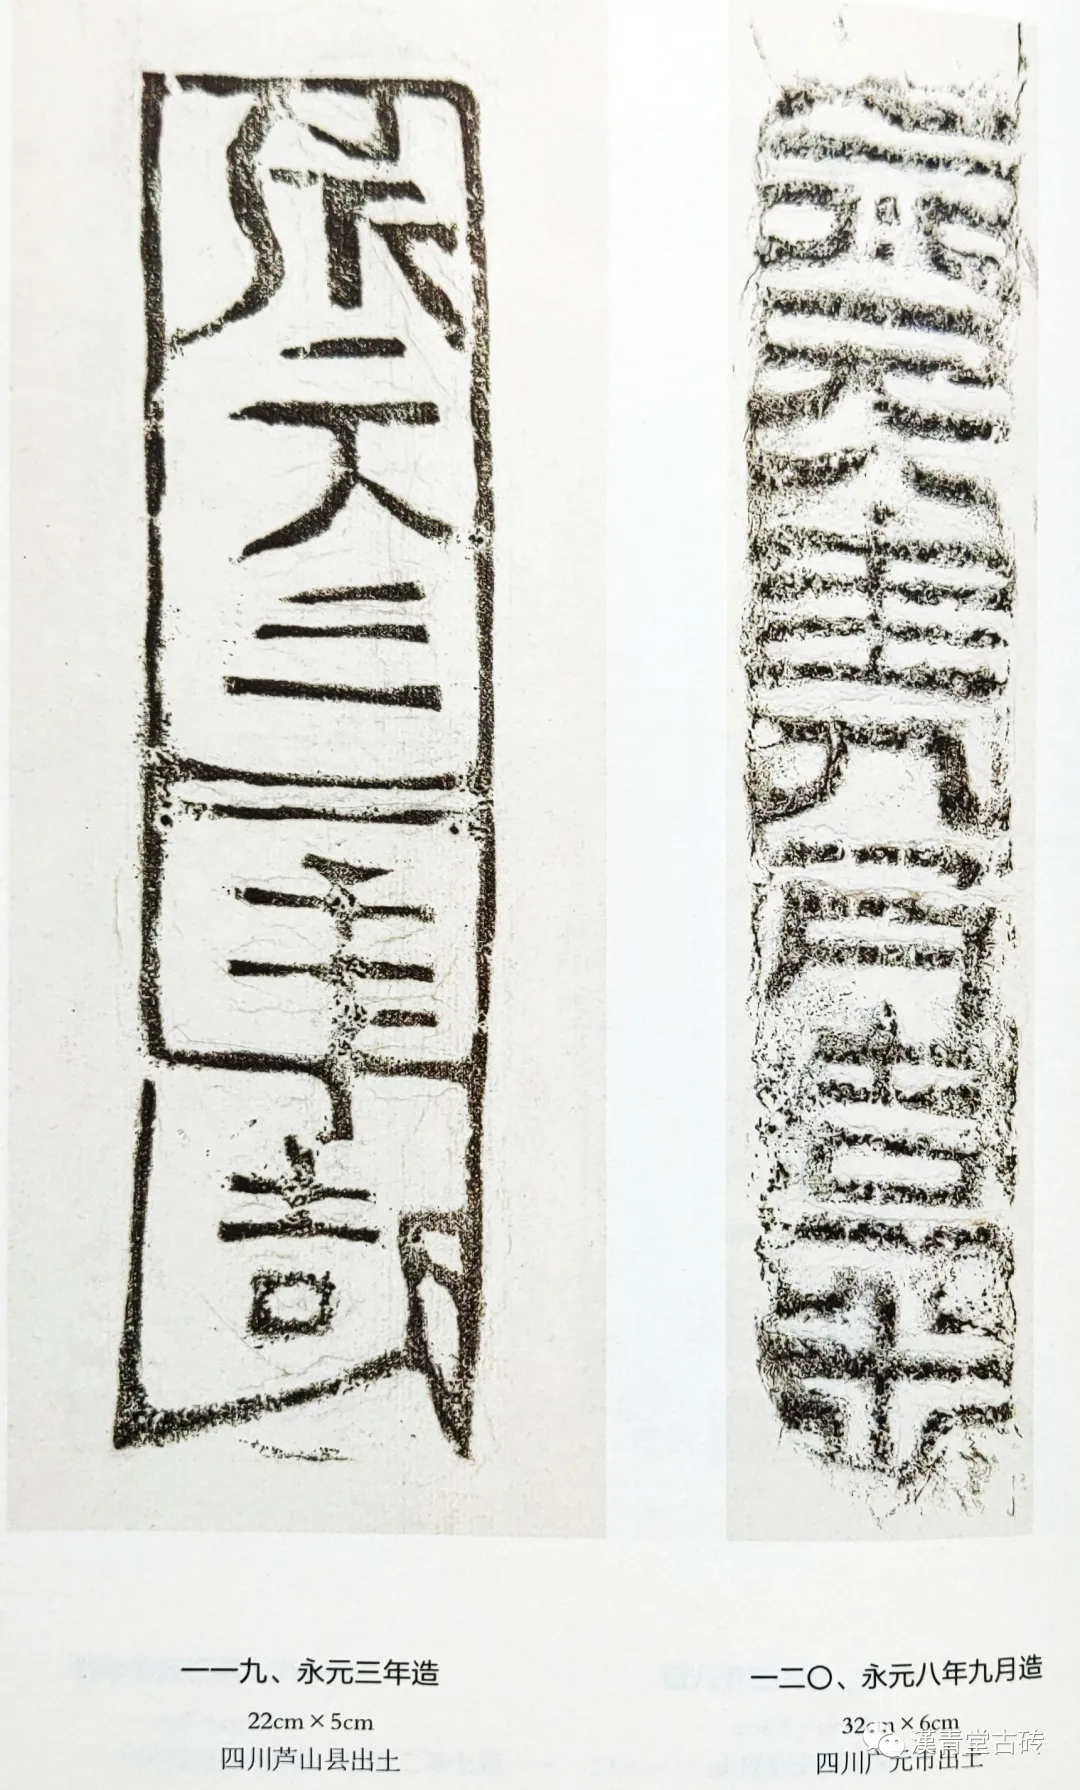 永元三年造
永元八年九月造
一一九、永元三年造
22cm×5cm
四川芦山县出土
一二〇、永元八年九月造
32cm×6cm
四川广元市出土
漢青堂古砖